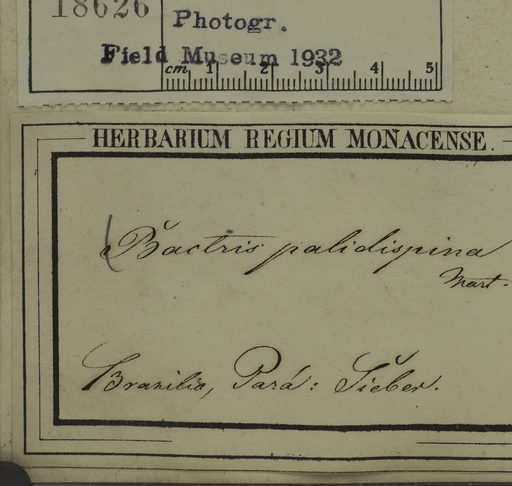 18626
Photogr.
Field Museum 1932
cm 1 2 3 4 5
HERBARIUM REGIUM MONACENSE.
(Bactris palidispina
Mart.
Brasilia, Pará: Sieber.